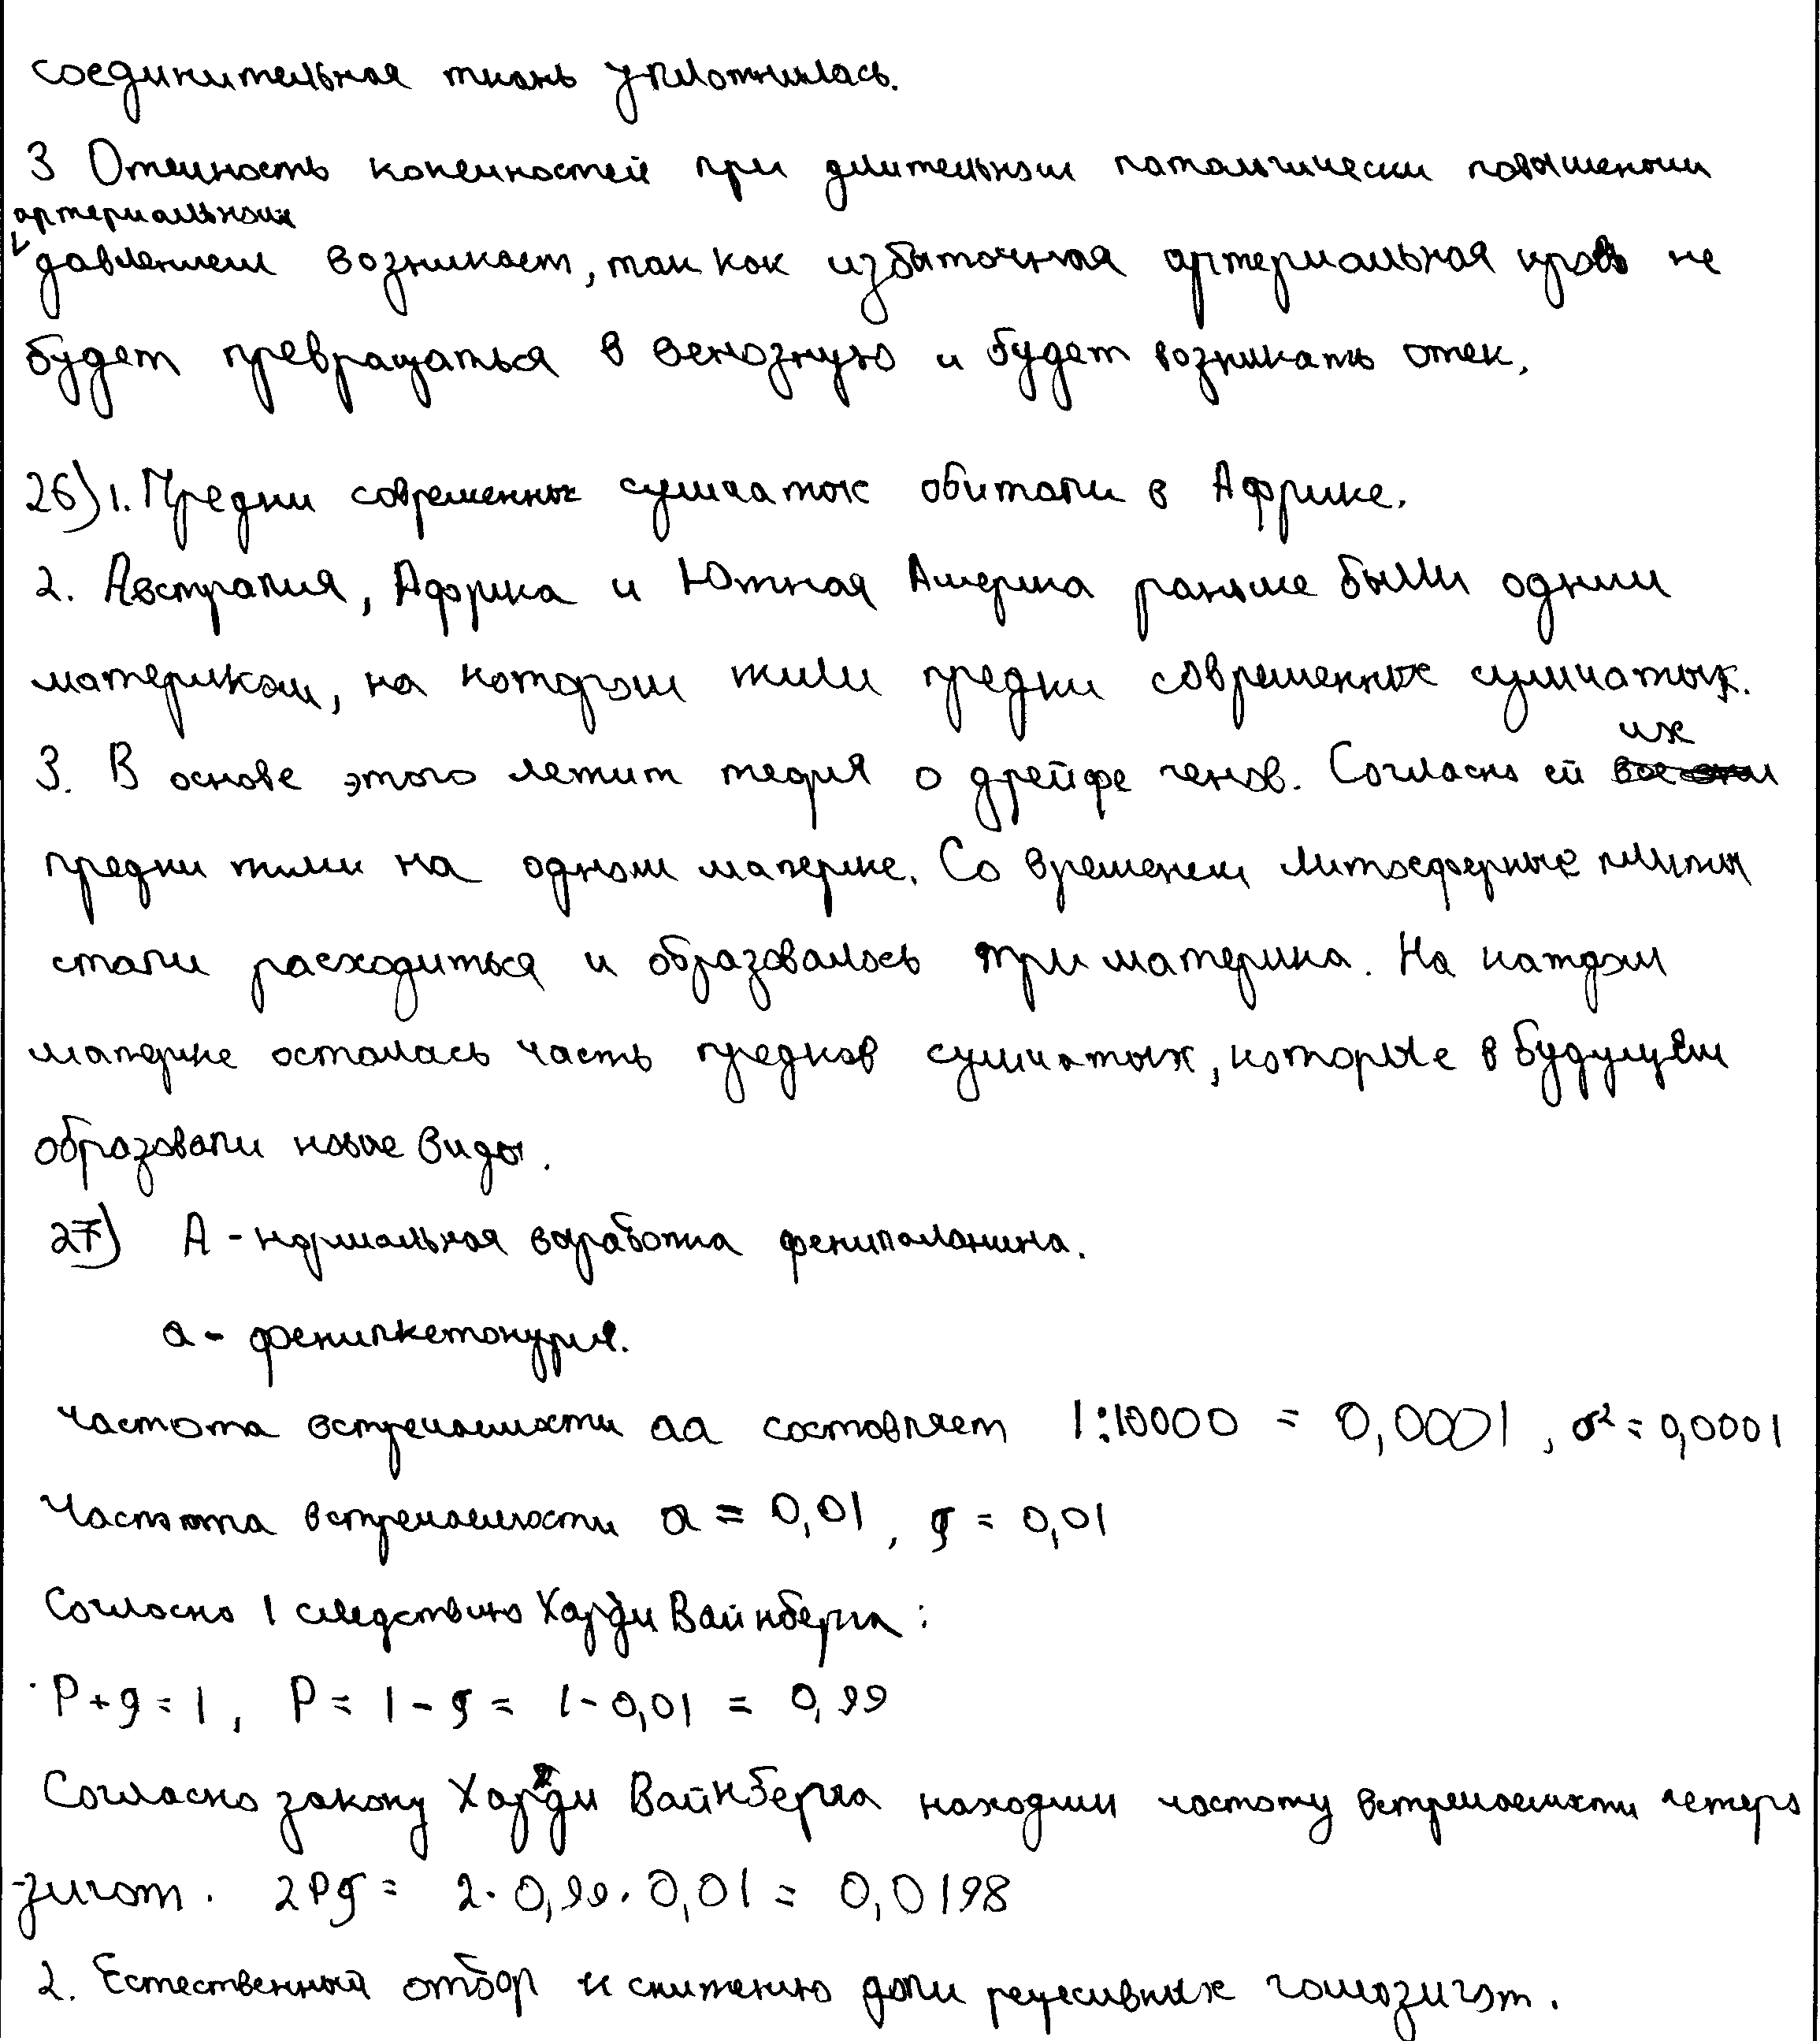 соединительная ткань уплотнилась.
3 Отечность конечностей при длительном патологически повышеном
артериальном
давлением возникает, так как избыточная артериальная кровь не
будет превращаться в венозную и будет возникать отек.
26) 1. Предки современных сумчатых обитали в Африке.
2. Австралия, Африка и Южная Америка раньше были одним
материком, на котором жили предки современных сумчатых.
3. В основе этого лежит теория о дрейфе генов. Согласно ей их
предки жили на одном материке. Со временем литосферные плиты
стали расходиться и образовалось три материка. На каждом
материке осталась часть предков сумчатых, которые в будущем
образовали новые виды.
27) А - нормальная выработка фенилаланина.
а - фенилкетонурия.
Частота встречаемости аа составляет 1:10000 = 0,0001, q² = 0,0001
Частота встречаемости а = 0,01, q = 0,01
Согласно 1 следствию Харди Вайнберга:
P + q = 1, P = 1 - q = 1 - 0,01 = 0,99
Согласно закону Харди Вайнберга находим частоту встречаемости гетеро
-зигот. 2Pq = 2 · 0,99 · 0,01 = 0,0198
2. Естественный отбор к снижению доли рецесивных гомозигот.